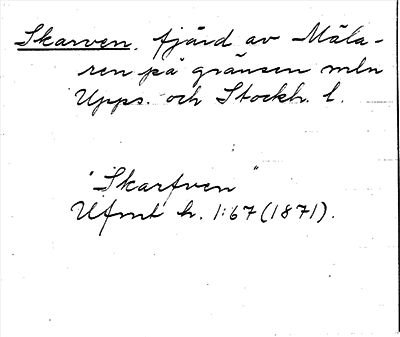 Skarven, fjärd av Mäla-
ren på gränsen mln
Upps. och Stockh. l.
"Skarfven"
Ufmt h. 1:67 (1871).